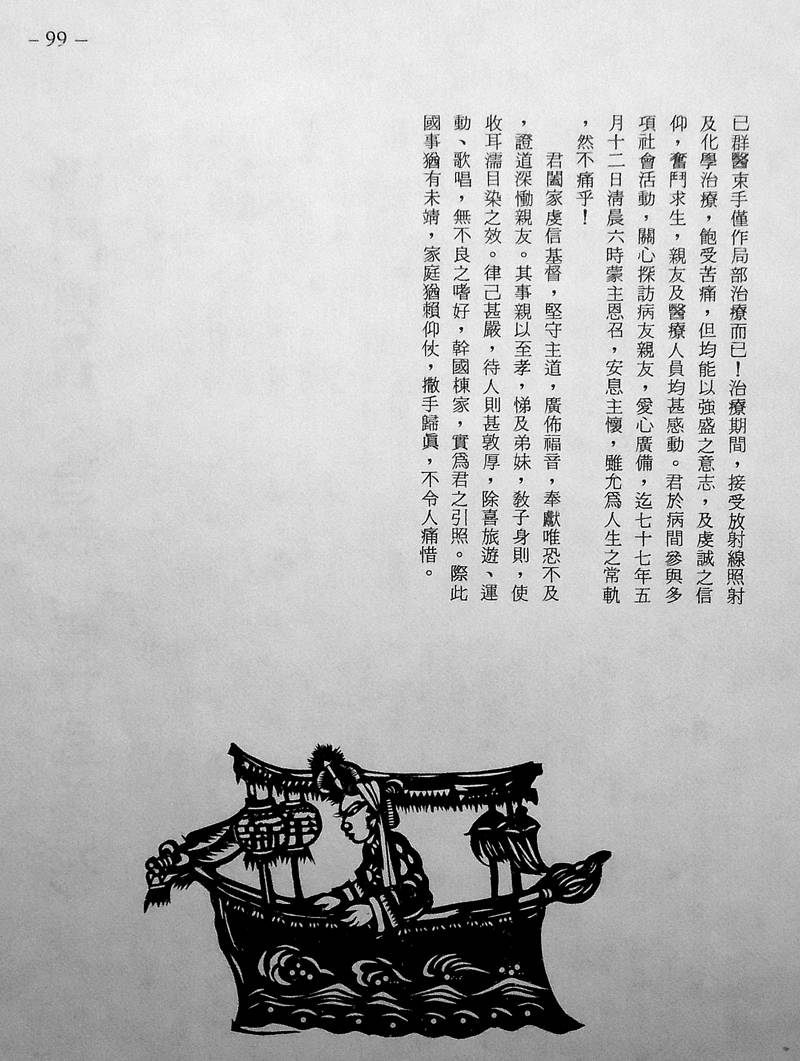 – 99 –
已群醫束手僅作局部治療而已！治療期間，接受放射線照射
及化學治療，飽受苦痛，但均能以強盛之意志，及虔誠之信
仰，奮鬥求生，親友及醫療人員均甚感動。君於病間參與多
項社會活動，關心探訪病友親友，愛心廣備，迄七十七年五
月十二日清晨六時蒙主恩召，安息主懷，雖允爲人生之常軌
，然不痛乎！
君闔家虔信基督，堅守主道，廣佈福音，奉獻唯恐不及
，證道深慟親友。其事親以至孝，悌及弟妹，敎子身則，使
收耳濡目染之效。律己甚嚴，待人則甚敦厚，除喜旅遊、運
動、歌唱，無不良之嗜好，幹國棟家，實爲君之引照。際此
國事猶有未靖，家庭猶賴仰仗，撒手歸眞，不令人痛惜。